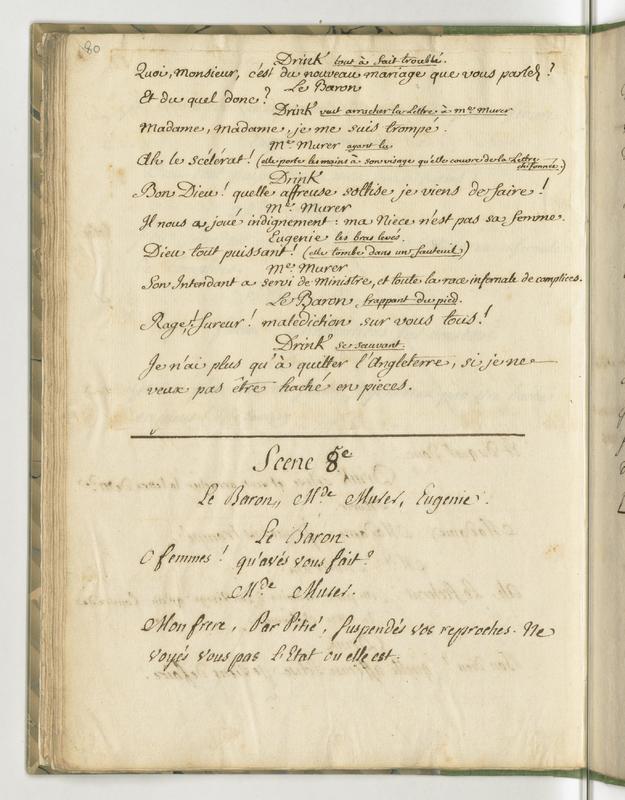 80
Drink tout à fait troublé.
Quoi, Monsieur, c'est du nouveau mariage que vous parlez ?
Le Baron
Et du quel donc ?
Drink veut arracher la Lettre à Me. Murer
Madame, Madame, je me suis trompé.
Me. Murer ayant lu
Ah le scélérat ! (elle porte les mains à son visage qu'elle couvre de la Lettre chifonnée.)
Drink
Bon Dieu ! quelle affreuse sottise je viens de faire !
Me. Murer
Il nous a joué indignement : ma Niece n'est pas sa femme.
Eugenie les bras levés.
Dieu tout puissant ! (elle tombe dans un fauteuil)
Me. Murer
Son Intendant a servi de Ministre, et toute la race infernale de complices.
Le Baron frappant du pied.
Rage, fureur ! malediction sur vous tous !
Drink se sauvant.
Je n'ai plus qu'à quitter l'Angleterre, si je ne
veux pas être haché en pieces.
Scene 8e
Le Baron, Mde Murer, Eugenie.
Le Baron.
O femmes ! qu'avés vous fait ?
Mde Murer.
Mon frere, Par Pitié, suspendés vos reproches. Ne
voyés vous pas l'Etat ou elle est.